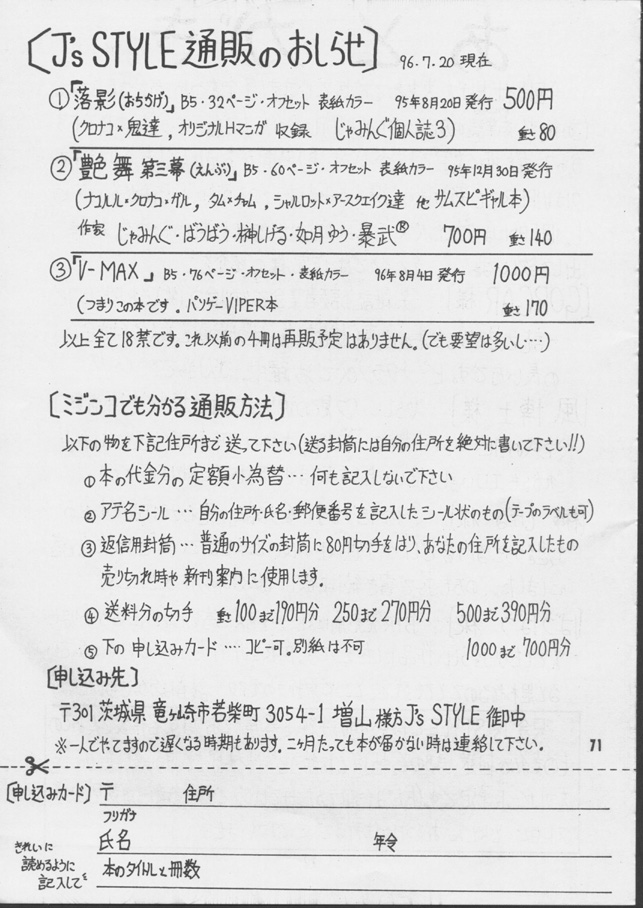 [J's STYLE 通販のおしらせ] 96.7.20 現在
①「落影(おちかげ)」B5・32ページ・オフセット 表紙カラー 95年8月20日発行 500円
(クロナコ×鬼達, オリジナルHマンガ 収録 じゃみんぐ個人誌3) 重さ80
②「艶舞 第三幕(えんぶ)」B5・60ページ・オフセット 表紙カラー 95年12月30日発行
(ナコルル・クロナコ×ガル, タム×チャム, シャルロット×アースクエイク達 他 サムスピギャル本)
作家 じゃみんぐ・ばうばう・榊しげる・如月ゆう・暴武® 700円 重さ140
③「V-MAX」 B5・76ページ・オフセット・表紙カラー 96年8月4日発行 1000円
(つまりこの本です。パソゲーVIPER本 重さ170
以上全て18禁です。これ以前の4冊は再販予定はありません。(でも要望は多いし…)
[ミジンコでも分かる通販方法]
以下の物を下記住所まで送って下さい(送る封筒には自分の住所を絶対に書いて下さい!!)
① 本の代金分の定額小為替… 何も記入しないで下さい
② アテ名シール … 自分の住所・氏名・郵便番号を記入したシール状のもの(テープのラベルも可)
③ 返信用封筒… 普通のサイズの封筒に80円切手をはり、あなたの住所を記入したもの
売り切れ時や新刊案内に使用します。
④ 送料分の切手 重さ100まで190円分 250まで270円分 500まで390円分
⑤ 下の 申し込みカード …. コピー可。別紙は不可 1000まで 700円分
[申し込み先]
〒301 茨城県 竜ヶ崎市若柴町3054-1 増山様方J's STYLE 御中
※一人でやってますので遅くなる時期もあります。二ヶ月たっても本が届かない時は連絡して下さい。 71
[申し込みカード] 〒 住所
フリガナ
氏名 年令
きれいに
読めるように
記入してを
本のタイトルと冊数